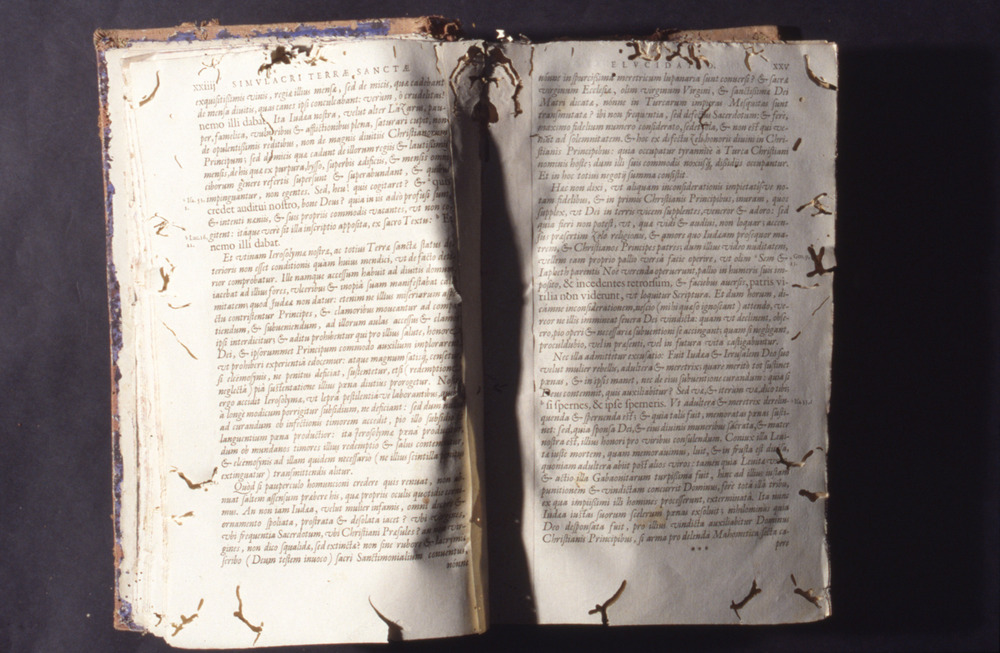 xxiiij SIMVLACRI TERRÆ SANCTÆ
exquisitissimis vinis, regiæ illius mensa, sed de micis, quæ cadebant
de mensa diuitis, quas canes ipsi conculcabant: verum, ô crudelitas!
nemo illi dabat. Ita Iudæa nostra, velut alter Lazarus, pau-
per, famelica, vulneribus & afflictionibus plena, saturari cupit, non
de opulentissimis redditibus, non de magnis diuitiis Christianorum
Principum; sed de micis quæ cadunt de illorum regiis & lautissimis
mensis, de his quæ ex purpura, bysso, superbis ædificiis, & mensis omni
ciborum genere refertis supersunt & superabundant, & quibus
impinguantur, non egentes. Sed, heu! quis cogitaret? & quis
credet auditui nostro, bone Deus? quia in iis adeò profusi sunt,
& intenti næniis, & suis propriis commodis vacantes, vt non co-
gitent: itaque verè sit illa inscriptio apposita, ex sacro Textu: Et
nemo illi dabat.
Et vtinam Ierosolyma nostra, ac totius Terræ sanctæ status de-
terioris non esset conditionis quàm huius mendici, vt de facto de-
terior comprobatur. Ille namque accessum habuit ad diuitis domum,
iacebat ad illius fores, vlceribus & inopiâ suam manifestabat cala-
mitatem; quod Iudææ non datur: etenim ne illius miseriarum aspe-
ctu contristentur Principes, & clamoribus moueantur ad compa-
tiendum, & subueniendum, ad illorum aulas accessus & clamor
ipsi interdicitur: & aditu prohibentur qui pro illius salute, honore
Dei, & ipsorummet Principum commodo auxilium implorarent,
vt prohiberi experientia edocemur: atque magnum satisq; censetur,
si eleemosynis, ne penitus deficiat, sustentetur, etsi (redemptione
neglectâ) piâ sustentatione illius pœna diutius prorogetur. Non
ergo accidit Ierosolymæ, vt lepra pestilentiâ-ve laborantibus, quibus
à longè modicum porrigitur subsidium, ne deficiant: sed dum nullus
ad curandum ob infectionis timorem accedit, pio illo subsidio
languentium pœna producitur: ita Ierosolymæ pœna producitur,
dum ob mundanos timores illius redemptio & salus contemnitur,
& eleemosynis ad illam quidem necessariò (ne illius scintilla penitus
extinguatur) transmittendis alitur.
Quòd si pauperculo homuncioni credere quis renuat, non ab-
nuat saltem assensum prabere his, quæ propriis oculis quotidie cerni-
mus. An non iam Iudæa, velut mulier infamis, omni decore &
ornamento spoliata, prostrata & desolata iacet? vbi Virgines,
vbi frequentia Sacerdotum, vbi Christi Præsules? an non vir-
gines, non dico squalidæ, sed extinctæ? non sine rubore & lacrymis
scribo (Deum testem inuoco) sacri Sanctimonialium conuentus,
nónne
Isa. 53.
1.
Luc. 16.
21.
ELVCIDATIO. xxv
nónne in spurcissima meretricum lupanaria sunt conuersi? & sacra
virginum Ecclesia, olim virginum Virgini, & sanctissimæ Dei
Matri dicata, nónne in Turcarum impuras Mesquitas sunt
transmutata? ibi non frequentia, sed defectus Sacerdotum: & ferè,
maximo fidelium numero considerato, sedet sola, & non est qui ve-
niat ad solemnitatem, & hoc ex defectu zeli honoris diuini in Chri-
stianis Principibus: quia occupatur tyrannicè à Turca Christiani
nominis hoste; dum illi suis commodis noxiisq; dissidiis occupantur.
Et in hoc totius negotij summa consistit.
Hæc non dixi, vt aliquam inconsiderationis impietatísve no-
tam fidelibus, & in primis Christianis Principibus, inuram, quos
supplex, vt Dei in terris vicem supplentes, veneror & adoro: sed
quia fieri non potest, vt, quæ vidi & audiui, non loquar: accen-
sus præsertim zelo religionis, & amoris quo Iudæam prosequor ma-
trem, & Christianos Principes patres; dum illius video nuditatem,
vellem eam proprio pallio versâ facie operire, vt olim Sem &
Iapheth parentis Noë verenda operuerunt, pallio in humeris suis im-
posito, & incedentes retrorsum, & faciebus auersis, patris vi-
rilia non viderunt, vt loquitur Scriptura. Et dum horum, di-
camus inconsiderationem, nescio (mihi quasi ignosciat) attendo, ve-
reor ne illis immineat seuera Dei vindicta: quam vt declinent, obse-
cro, pio operi & necessariæ subuentioni se accingant; quam si negligant,
proculdubio, vel in præsenti, vel in futura vita castigabuntur.
Nec illa admittetur excusatio: Fuit Iudæa & Ierusalem Deo suo
velut mulier rebellis, adultera & meretrix: quare meritò tot sustinet
pœnas, & in ipsis manet, nec de eius subuentione curandum: quia si
Deus contemnit, quis auxiliabitur? Sed væ, & iterum væ, dico tibi:
si spernes, & ipse sperneris. Vt adultera & meretrix derelin-
quenda & spernenda est; & quia talis fuit, memoratas pœnas susti-
net: sed, quia sponsa Dei, & eius diuinis muneribus sacrata, & mater
nostra est, illius honori pro viribus consulendum. Coniux illa Leui-
tæ iuste mortem, quam memorauimus, luit, & in frusta est diuisa,
quoniam adultera abiit post alios viros: tamen quia Leuitæ coniux,
& actio illa Gabaonitarum turpissima fuit, hæc ad illius iustam
punitionem & vindictam concurrit Dominus, ferè totâ illâ tribu,
ex qua impiissimi illi homines processerunt, exterminatâ. Ita modò
Iudæa iustas suorum scelerum pœnas exsoluit; nihilominus quia
Deo desponsata fuit, pro illius vindicta auxiliabitur Dominus
Christianis Principibus, si arma pro delenda Mahometica secta ca-
pero
***
Gen. 9.
23.
Isa. 33. 1.